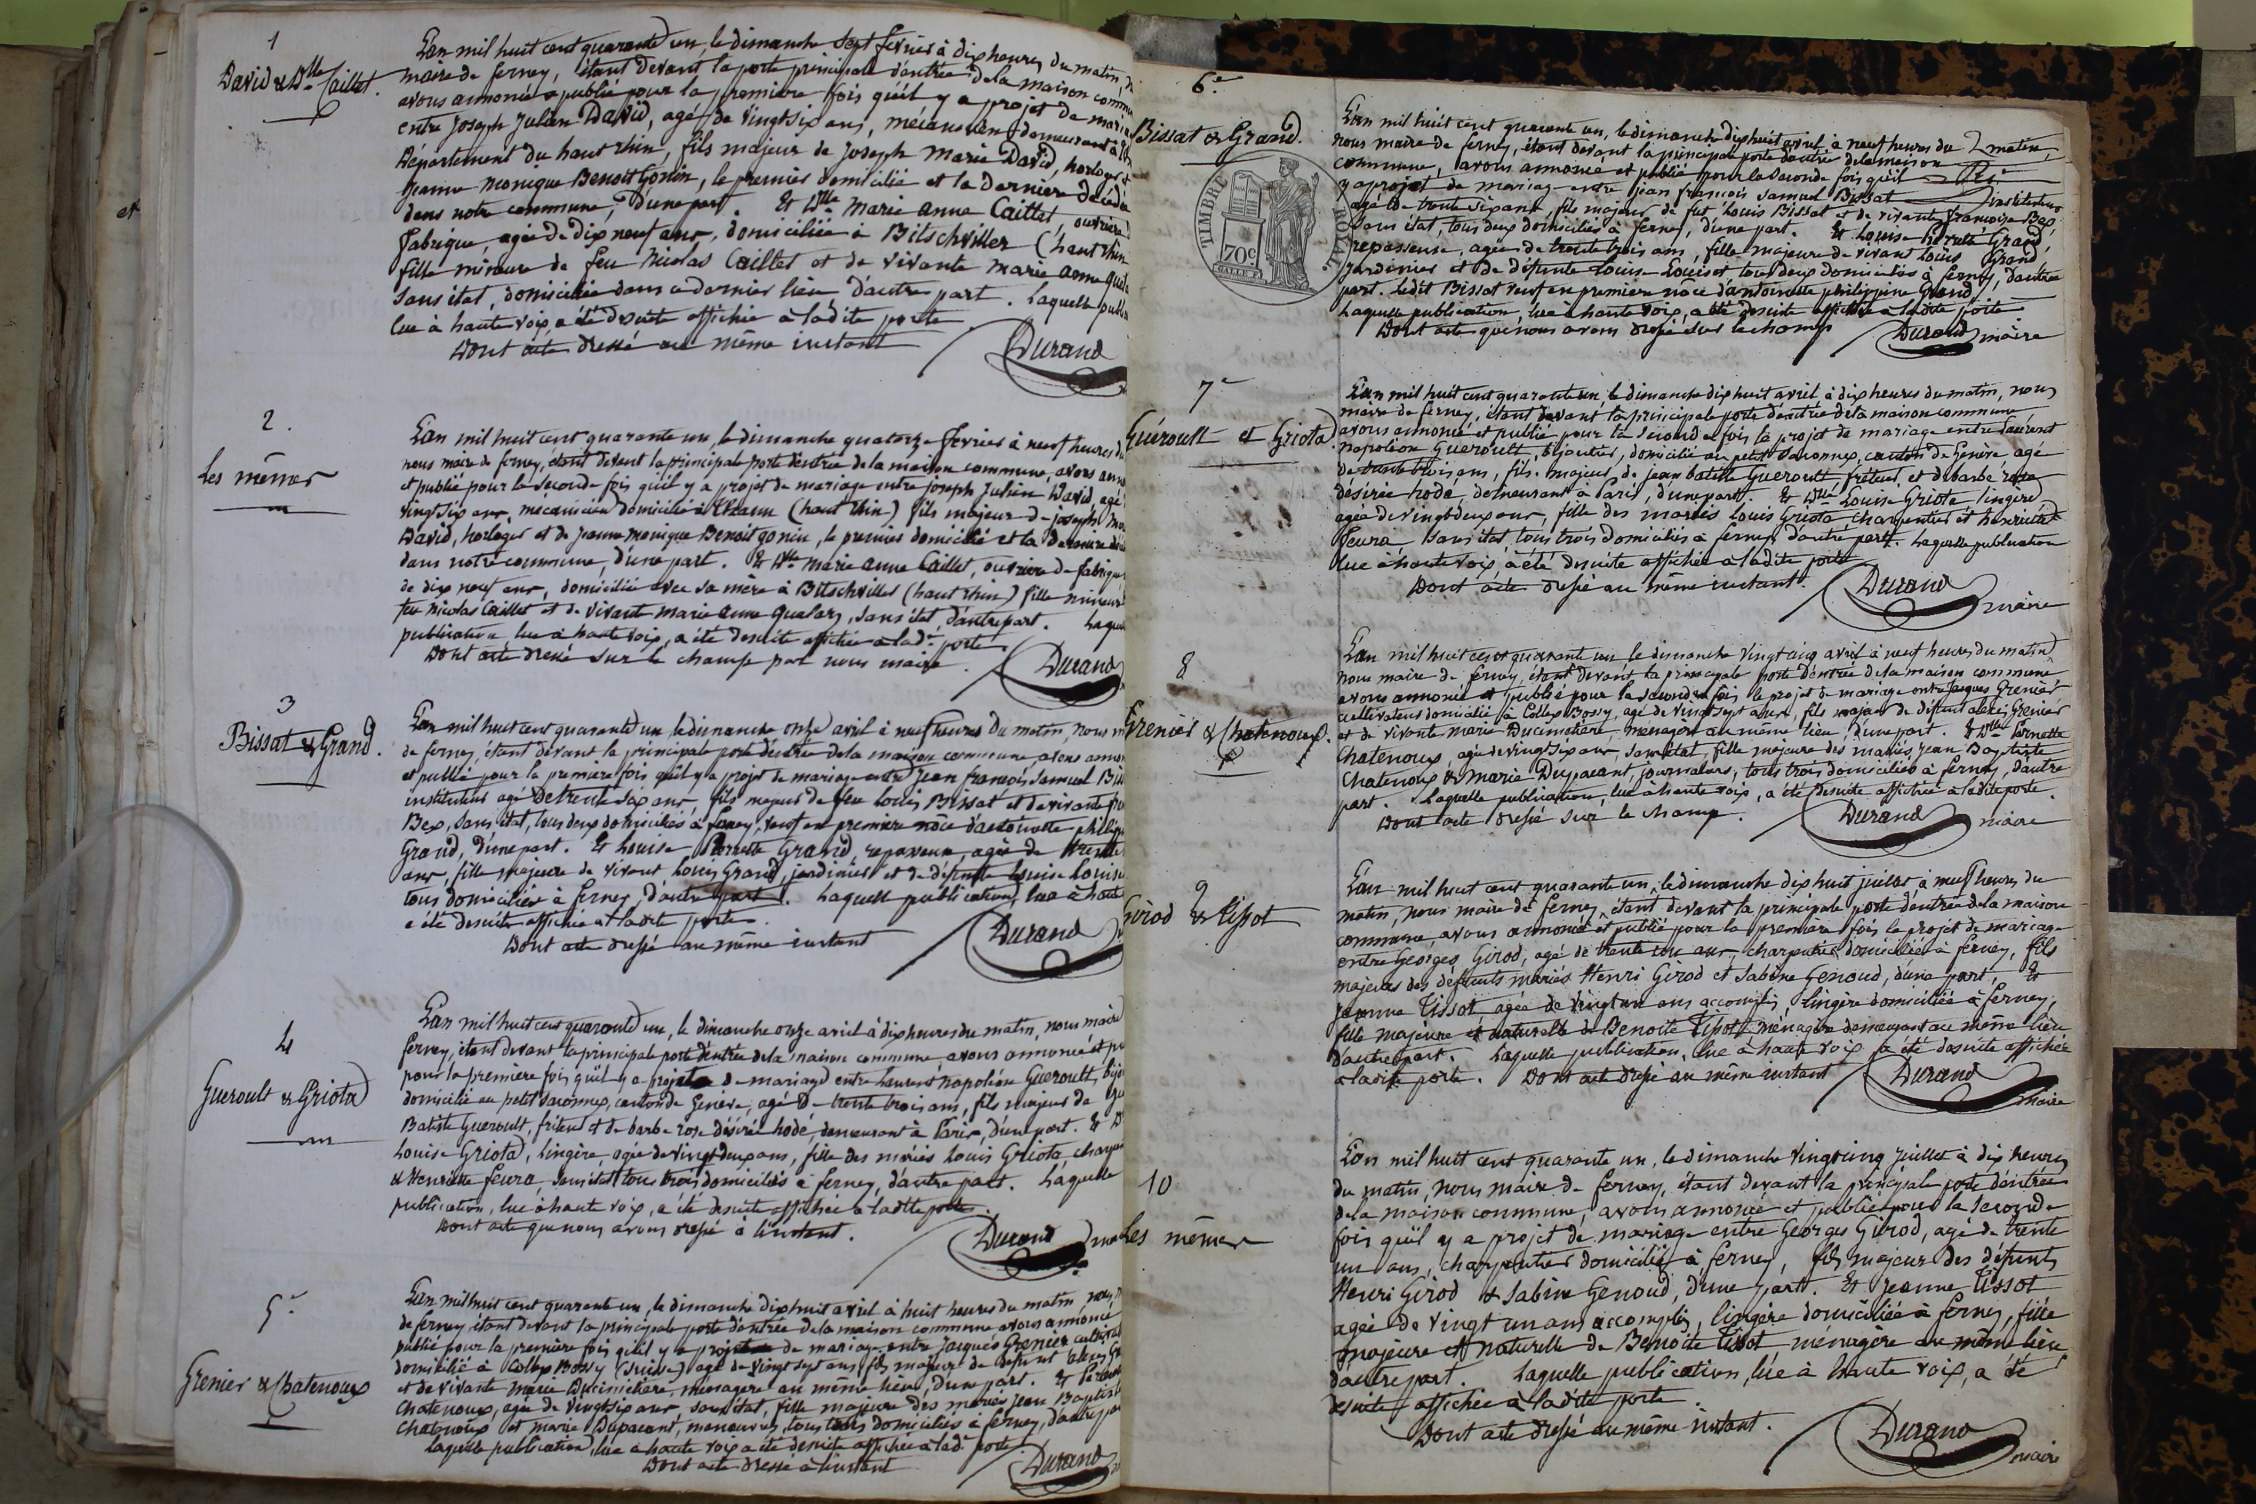 1
David & Dlle Caillet.
L'an mil huit cent quarante un, le dimanche sept fevrier à dix heures du matin,
maire de ferney, étant devant la porte principale d'entrée de la maison commu
avons annoncé & publié pour la premiere fois qu'il y a projet de maria
entre Joseph Julien David, agé de vingt six ans, mécanicien demeurant à
département du haut rhin, fils majeur de Joseph Marie David, horloger et
jeanne Monique Benoit Gonin, le premier domicilié et la derniere décédée
dans notre commune, d'une part. Et Dlle Marie Anne Caillet, ouvriere
fabrique, agée de dix neuf ans, domiciliée à Bitschviller (haut rhin
fille mineure de feu Nicolas Caillet et de vivante Marie Anne
sans état, domiciliée dans ce dernier lieu d'autre part. Laquelle publi
lue à haute voix, a été de suite affichée à la dite porte
Dont acte dressé au même instant
Durand
2.
Les mêmes
L'an mil huit cent quarante un, le dimanche quatorze fevrier à neuf heures du
nous maire de ferney, étant devant la principale porte d'entrée de la maison commune, avons ann
et publié pour la seconde fois qu'il y a projet de mariage entre joseph Julien David, agé
vingt six ans, mecanicien domicilié à Thann (haut rhin) fils majeur de joseph
David, horloger et de Jeanne Monique Benoit gonin, le premier domicilié et la derniere
dans notre commune, d'une part. Et Dlle Marie Anne Caillet, ouvriere de fabrique
de dix neuf ans, domiciliée avec sa mère à Bitschviller (haut rhin) fille mineure
feu Nicolas Caillet et de vivante marie anne, sans état, d'autre part. Laque
publication lue à haute voix, a été de suite affichée à la de porte
Dont acte dressé sur le champ par nous maire.
Durand
3
Bissat & Grand.
L'an mil huit cent quarante un le dimanche onze avril à neuf heures du matin, nous
de ferney, étant devant la principale porte d'entrée de la maison commune avons anno
et publié pour la premiere fois qu'il y a projet de mariage entre Jean françois Samuel Bis
instituteur agé de trente six ans, fils majeur de feu Louis Bissat et de vivante
Bex, sans état, tous deux domiciliés à ferney, veuf en premiere nôce d'antoinette philip
Grand, d'une part. Et Louise Pernette Grand, repasseuse, agée de trente
ans, fille majeure de vivant Louis Grand, jardinier et de défunte Louise Louis
tous domiciliés à ferney, d'autre part. Laquelle publication, lue à haute
a été de suite affichée à la dite porte.
Dont acte dressé au même instant
Durand
4
Gueroult & Griota
L'an mil huit cent quarante un, le dimanche onze avril à dix heures du matin, nous maire
ferney, étant devant la principale porte d'entrée de la maison commune, avons annoncé et pu
pour la premiere fois qu'il y a projet de mariage entre Laurent napoléon Gueroult, bijou
domicilié au petit Saconnex, canton de Genève, agé de trente trois ans, fils majeur de
Batiste Gueroult, friteur et de barbe rose désirée hodé, demeurant à Paris, d'une part. Et D
Louise Griota, lingère, agée de vingt deux ans, fille des mariés Louis Griota charpen
& Henriette feura, sans état tous trois domiciliés à ferney, d'autre part. Laquelle
publication, lue à haute voix, a été de suite affichée à la dite porte.
Dont acte que nous avons dressé à l'instant.
Durand
5e
Grenier & Chatenoux
L'an mil huit cent quarante un, le dimanche dix huit avril à huit heures du matin, nous
de ferney étant devant la principale porte d'entrée de la maison commune avons annoncé
publié pour la premiere fois qu'il y a projet de mariage entre Jacques Grenier cultivat
domicilié à Collex Bossy (suisse) agé de vingt sept ans fils majeur de défunt alexis Gre
et de vivante Marie Ducimetiere, ménagere au même lieu, d'une part. Et Pernet
Chatenoux, agée de vingt six ans, sans état, fille majeure des mariés Jean Baptist
Chatenoux et marie Dupacant, manœuvres, tous trois domiciliés à ferney, d'autre pa
laquelle publication, lue à haute voix a été de suite affichée à la de porte
Dont acte dressé à l'instant
Durand
6e
Bissat & Grand.
TIMBRE ROYAL
70c
L'an mil huit cent quarante un, le dimanche dix huit avril, à neuf heures du matin,
nous maire de ferney, étant devant la principale porte d'entrée de la maison
commune, avons annoncé et publié pour la seconde fois qu'il
y a projet de mariage entre jean françois Samuel Bissat instituteur
agé de trente six ans, fils majeur de feu Louis Bissat et de vivante françoise Bex,
sans état, tous deux domiciliés à ferney, d'une part. Et Louise Pernette Grand,
repasseuse, agée de trente trois ans, fille majeure de vivant Louis Grand
jardinier et de défunte Louise Louis et tous deux domiciliés à ferney, d'autre
part. Ledit Bissat veuf en premiere nôce d'antoinette philippine Grand
Laquelle publication, lue à haute voix, a été de suite affichée à la dite porte
Dont acte que nous avons dressé sur le champ
Durand maire
7e
Guéroult et Griota
L'an mil huit cent quarante un, le dimanche dix huit avril à dix heures du matin, nous
maire de ferney, étant devant la principale porte d'entrée de la maison commune
avons annoncé et publié pour la seconde fois le projet de mariage entre Laurent
napoléon Gueroult, bijoutier, domicilié au petit Saconnex, canton de Genève agé
de trente trois ans, fils majeur de jean batiste Gueroult friteur, et de barbe rose
désirée hodé, demeurant à Paris, d'une part. Et Dlle Louise Griota lingère
agée de vingt deux ans, fille des mariés Louis Griota charpentier et henriette
feura sans état, tous trois domiciliés à ferney d'autre part. Laquelle publication
lue à haute voix, a été de suite affichée à la dite porte
Dont acte dressé au même instant.
Durand maire
8
Grenier & Chatenoux.
L'an mil huit cent quarante un le dimanche vingt cinq avril à neuf heures du matin
nous maire de ferney, étant devant la principale porte d'entrée de la maison commune
avons annoncé et publié pour la seconde fois le projet de mariage entre Jacques Grenier
cultivateur domicilié à Collex Bossy, agé de vingt sept ans, fils majeur de défunt alexis Grenier
et de vivante Marie Ducimetière, menagere au même lieu, d'une part. Et Dlle Pernette
Chatenoux, agée de vingt six ans, sans état, fille majeure des mariés Jean Baptiste
Chatenoux & Marie Dupacant, journaliers, tous trois domiciliés à ferney, d'autre
part. Laquelle publication, lue à haute voix, a été de suite affichée à la dite porte.
Dont acte dressé sur le champ.
Durand maire
9
Girod & Tissot
L'an mil huit cent quarante un, le dimanche dix huit juillet à neuf heures du
matin, nous maire de ferney, étant devant la principale porte d'entrée de la maison
commune, avons annoncé et publié pour la premiere fois le projet de mariage
entre Georges Girod, agé de trente un ans, charpentier domicilié à ferney, fils
majeur des défunts mariés Henri Girod et Sabine Genoud, d'une part, Et
jeanne Tissot agée de vingt un ans accomplis lingère domiciliée à ferney,
fille majeure et naturelle de Benoite Tissot, ménagère demeurant au même lieu
d'autre part. Laquelle publication, lue à haute voix a été de suite affichée
à la dite porte. Dont acte dressé au même instant
Durand maire
10
Les mêmes
L'an mil huit cent quarante un, le dimanche vingt cinq juillet à dix heures
du matin, nous maire de ferney, étant devant la principale porte d'entrée
de la maison commune, avons annoncé et publié pour la seconde
fois qu'il y a projet de mariage entre Georges Girod, agé de trente
un ans, charpentier domicilié à ferney, fils majeur des défunts
Henri Girod & Sabine Genoud, d'une part. Et Jeanne Tissot
agée de vingt un ans accomplis, lingère domiciliée à ferney, fille
majeure et naturelle de Benoite Tissot ménagère au même lieu
d'autre part. Laquelle publication, lue à haute voix, a été
de suite affichée à la dite porte
Dont acte dressé au même instant.
Durand maire